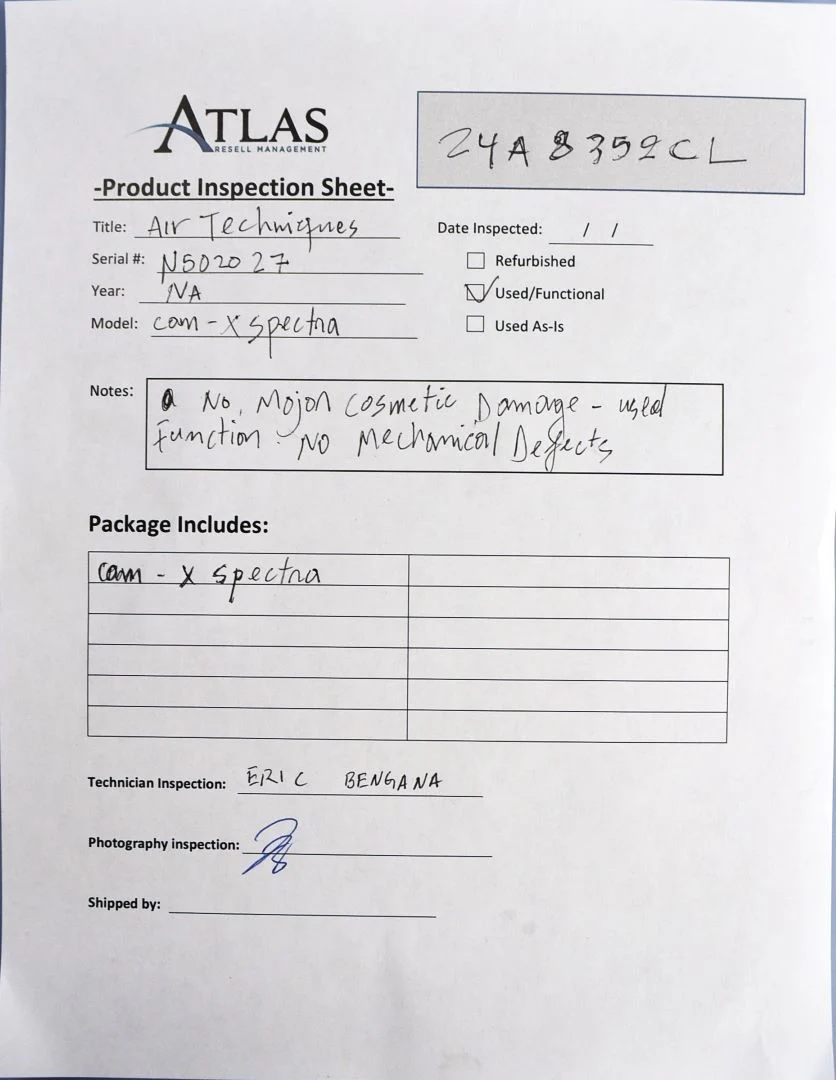 ATLAS
RESELL MANAGEMENT
24A8352CL
-Product Inspection Sheet-
Title: Air Techniques
Date Inspected: / /
Serial #: N502027
Refurbished
Year: NA
Used/Functional
Model: cam - X spectra
Used As-Is
Notes: No, Major Cosmetic Damage - used
Function - No Mechanical Defects
Package Includes:
cam - X spectra
Technician Inspection: ERIC BENGANA
Photography inspection:
Shipped by: